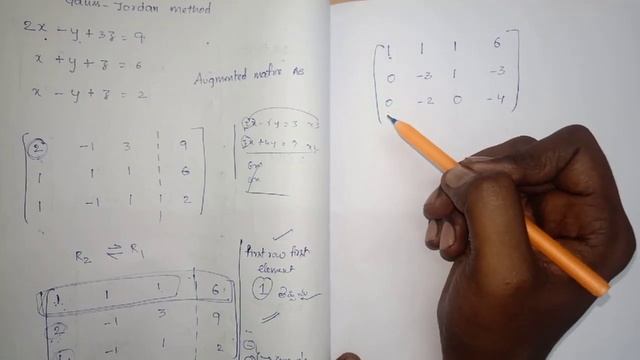 Gauss-Jordan method
2x - y + 3z = 9
x + y + z = 6
x - y + z = 2
Augmented matrix As
2 -1 3 9
1 1 1 6
1 -1 1 2
R2 ⇌ R1
1 1 1 6
2 -1 3 9
1 -1 1 2
First row first
element
1
1 1 1 6
0 -3 1 -3
0 -2 0 -4